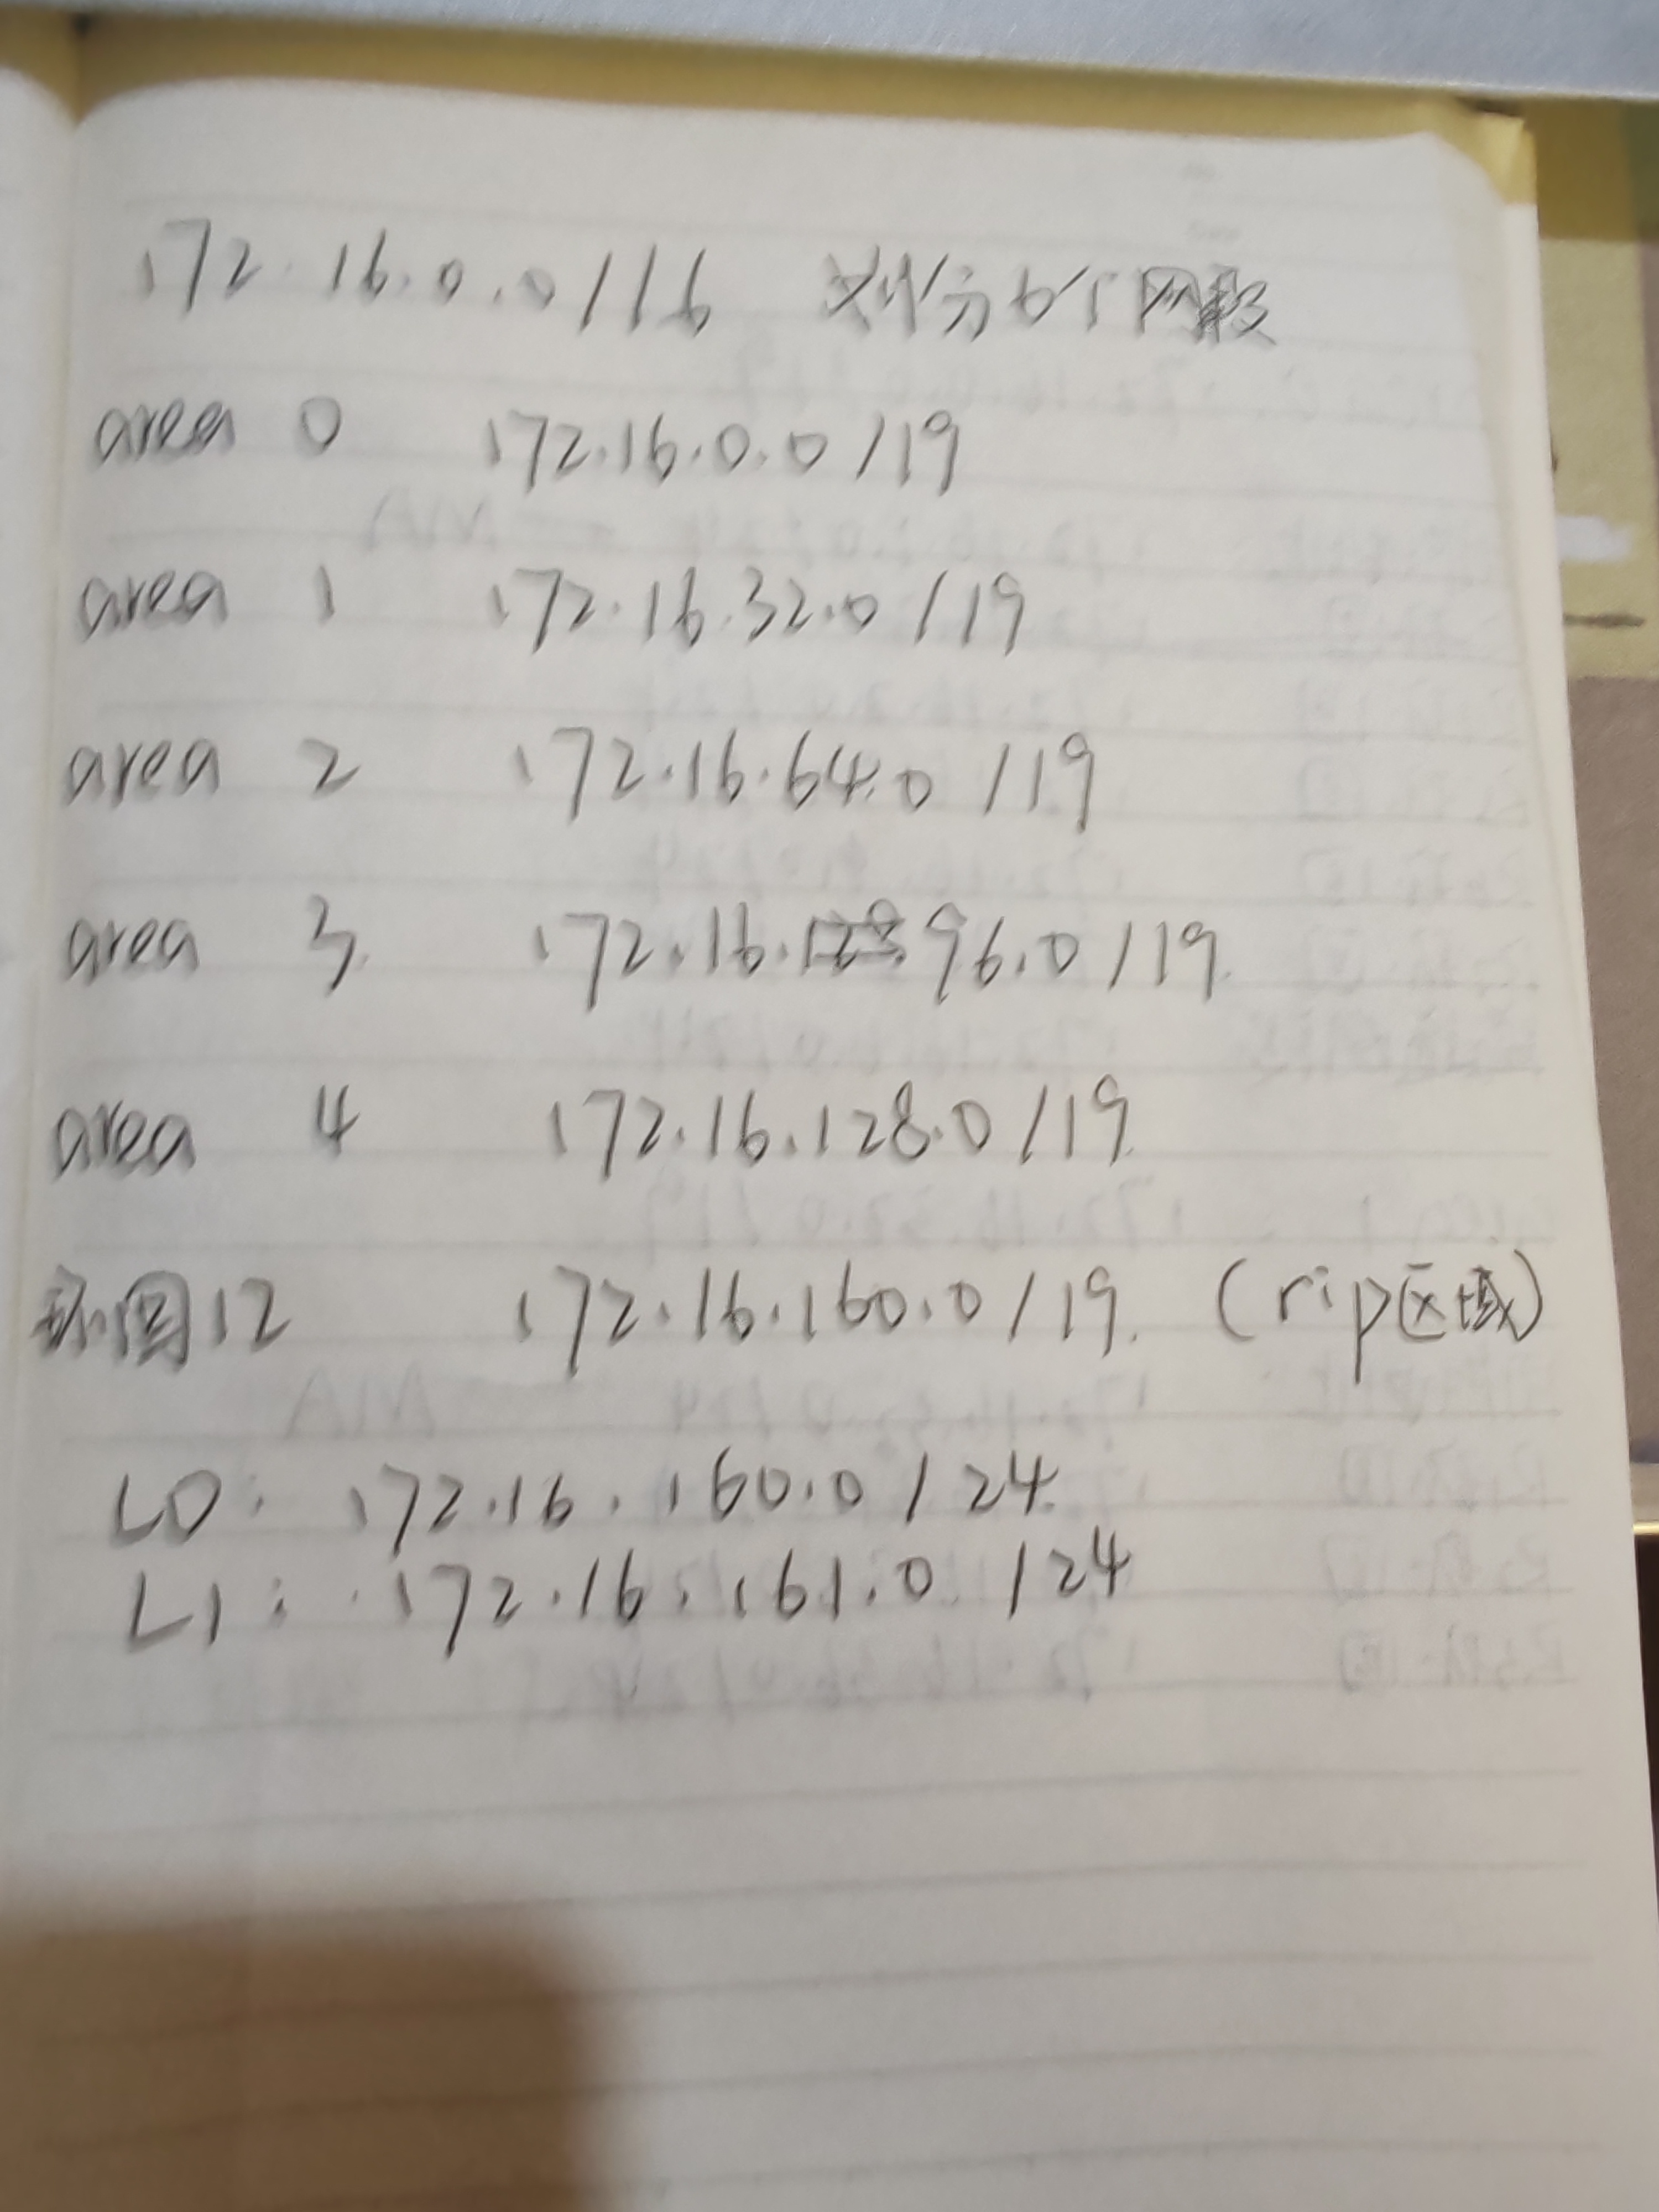 172.16.0.0/16 划分6个网段
area 0 172.16.0.0/19
area 1 172.16.32.0/19
area 2 172.16.64.0/19
area 3 172.16.96.0/19
area 4 172.16.128.0/19
环回12 172.16.160.0/19 (rip区域)
L0: 172.16.160.0/24
L1: 172.16.161.0/24